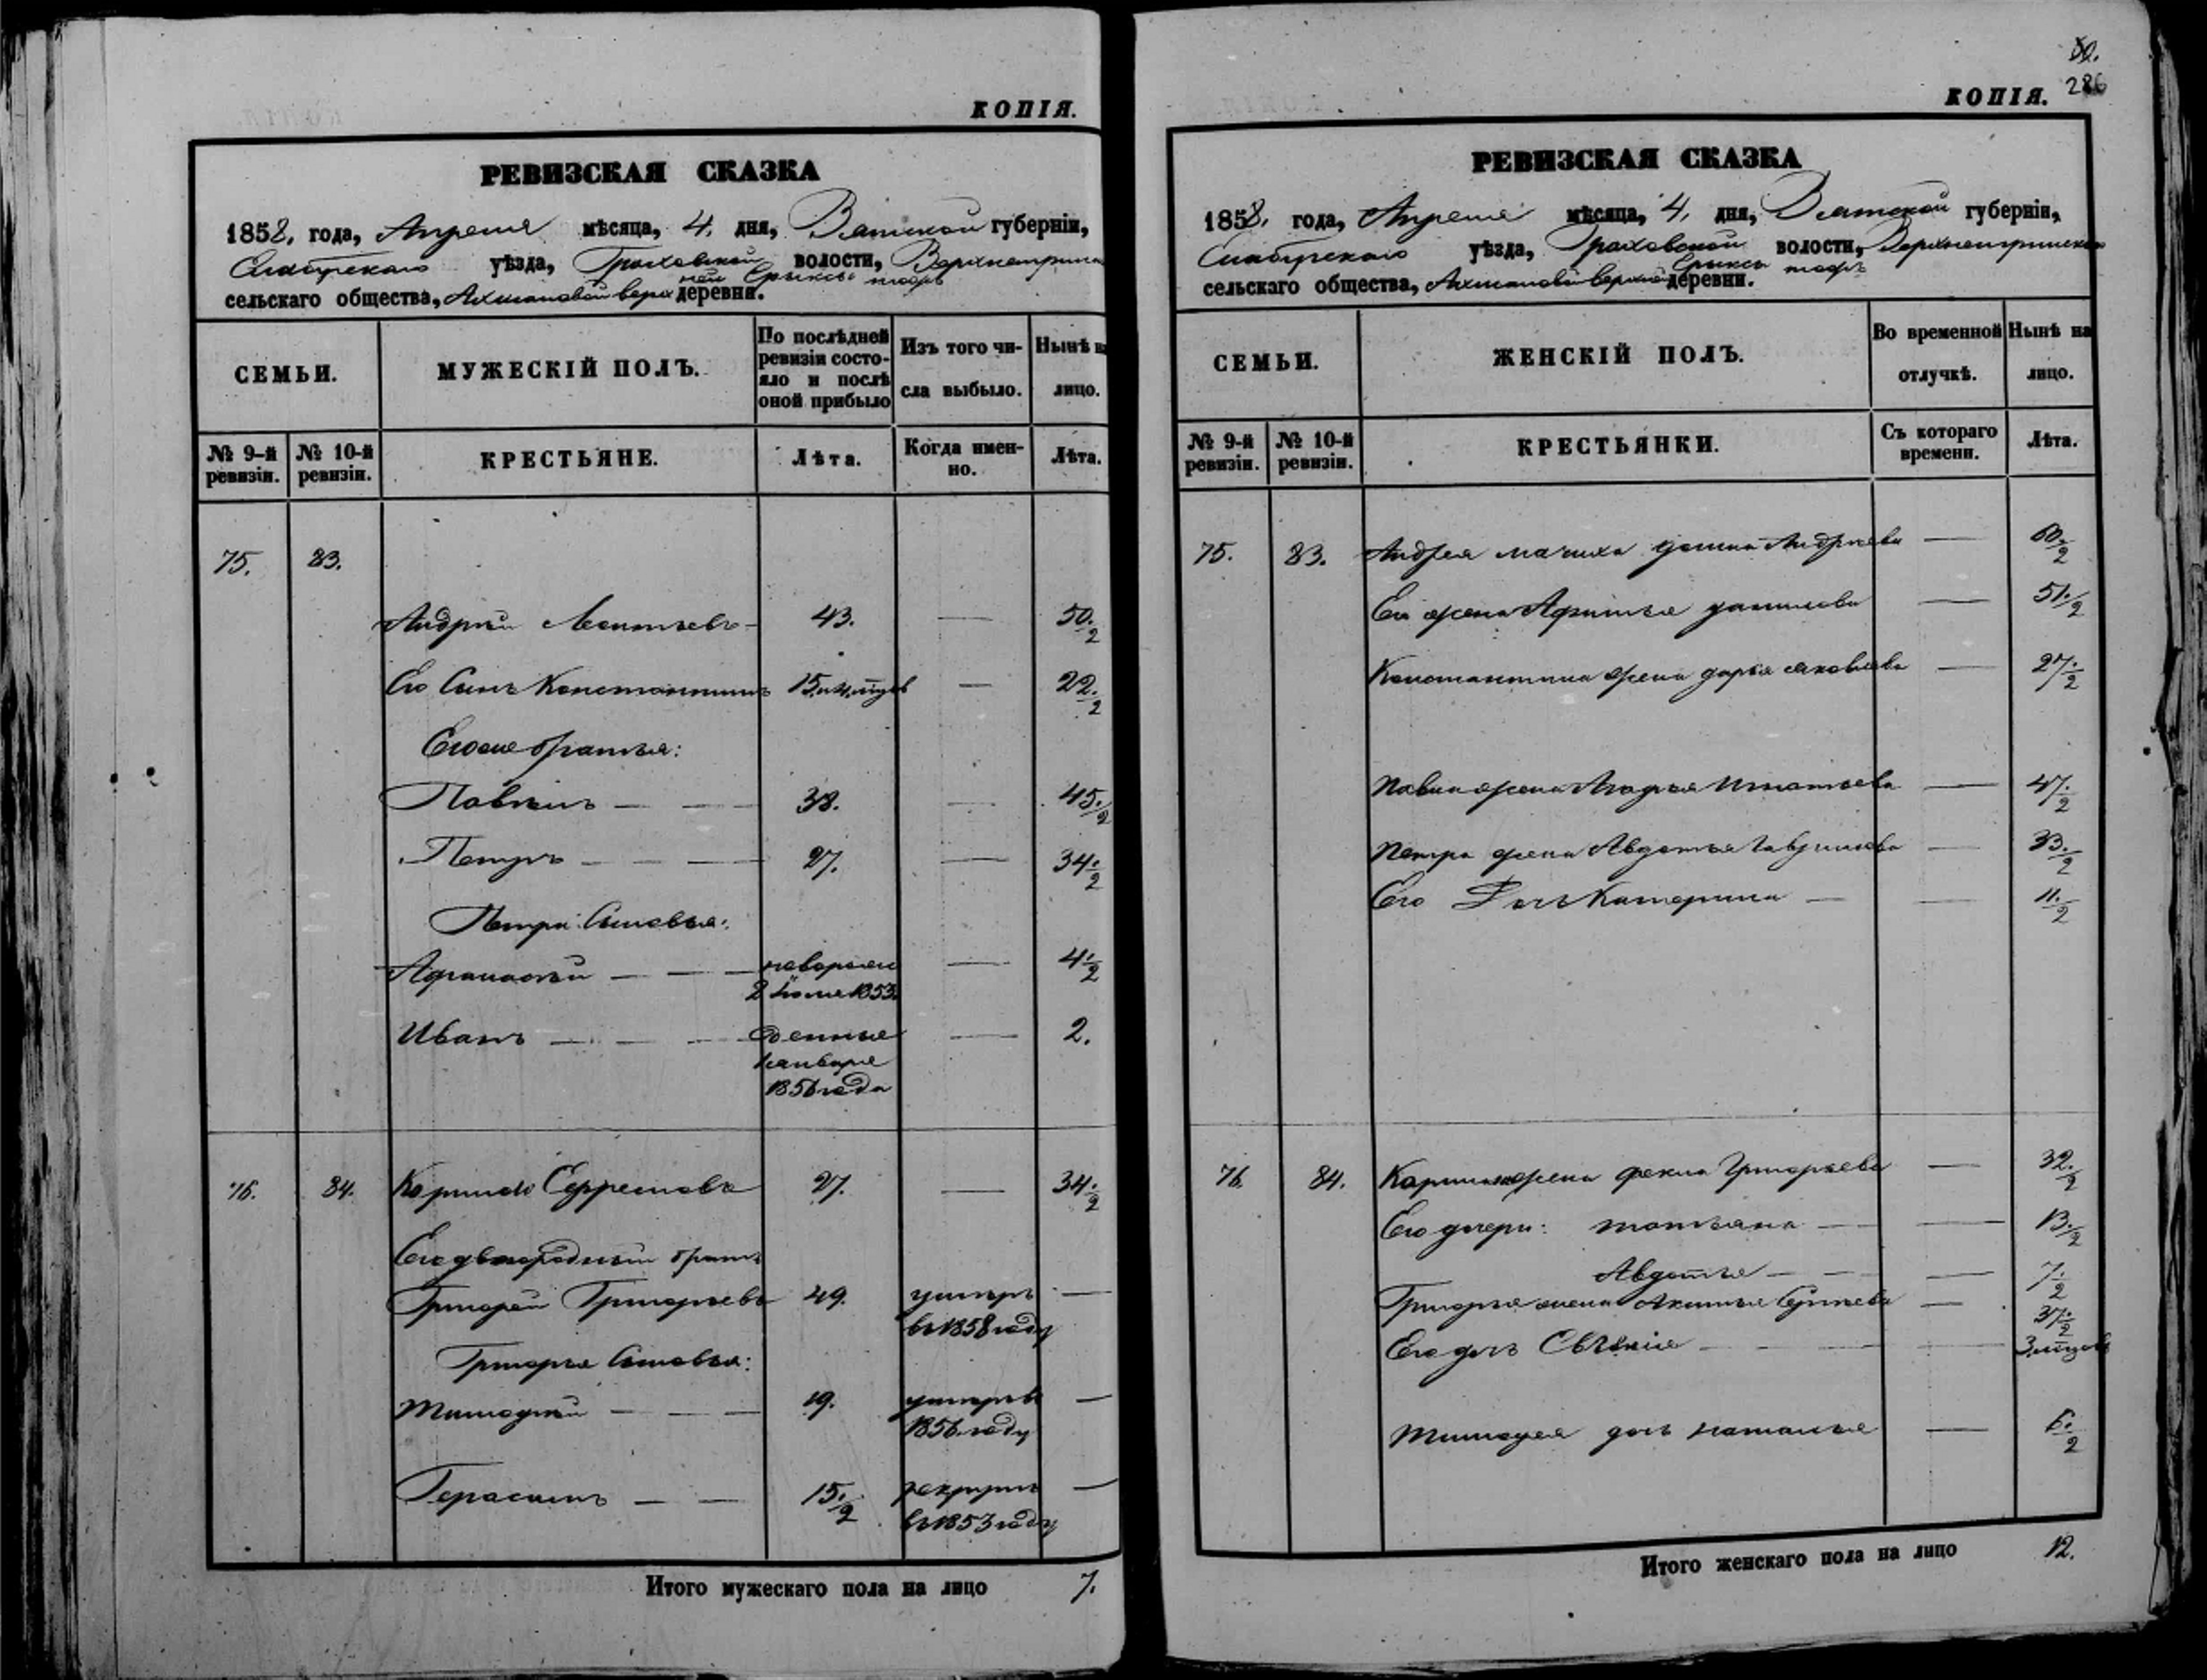 КОПІЯ.
РЕВИЗСКАЯ СКАЗКА
1858. года, Апреля мѣсяца, 4. дня, Вятской губерніи,
уѣзда, Граховской волости,
сельскаго общества, деревни.
СЕМЬИ.
МУЖЕСКІЙ ПОЛЪ.
По послѣдней ревизіи состояло и послѣ оной прибыло
Изъ того числа выбыло.
Нынѣ на лицо.
№ 9-й ревизіи.
№ 10-й ревизіи.
КРЕСТЬЯНЕ.
Лѣта.
Когда именно.
Лѣта.
75. 83.
Андрей Леонтьевъ 43. — 50 1/2
Его Сынъ Константинъ 15 — 22 1/2
Его же братья:
Павелъ — — 38. — 45 1/2
Петръ — — — 27. — 34 1/2
Петра Сыновья:
Афанасій — — — 4 1/2
1853
Иванъ — — — — 2.
Января
1856 года
76. 84. Ефремовъ 27. — 34 1/2
Его двоюродный братъ
Григорій Григорьевъ 49. умеръ —
въ 1858 году
Григорья Сыновья:
Тимофей — — — 19. умеръ въ —
1856 году
Герасимъ — — 15 1/2 рекрутъ —
въ 1853 году
Итого мужескаго пола на лицо 7.
50.
286
КОПІЯ.
РЕВИЗСКАЯ СКАЗКА
1858. года, Апреля мѣсяца, 4. дня, Вятской губерніи,
уѣзда, Граховской волости,
сельскаго общества, деревни.
СЕМЬИ.
ЖЕНСКІЙ ПОЛЪ.
Во временной отлучкѣ.
Нынѣ на лицо.
№ 9-й ревизіи.
№ 10-й ревизіи.
КРЕСТЬЯНКИ.
Съ котораго времени.
Лѣта.
75. 83. Андрея мачиха Андреева —
Его жена данилова — 51 1/2
Константина жена дарья яковлева — 27 1/2
Павла жена Игнатьева — 47 1/2
Петра жена Авдотья Гаврилова — 33 1/2
Его Дочь Катерина — — 11 1/2
76. 84. жена фекла Григорьева — 32 1/2
Его дочери: татьяна — — 13 1/2
Авдотья — — — 7 1/2
Григорья жена Сергѣева — 37 1/2
Его дочь — — —
Тимофея дочь наталья — 6 1/2
Итого женскаго пола на лицо 12.